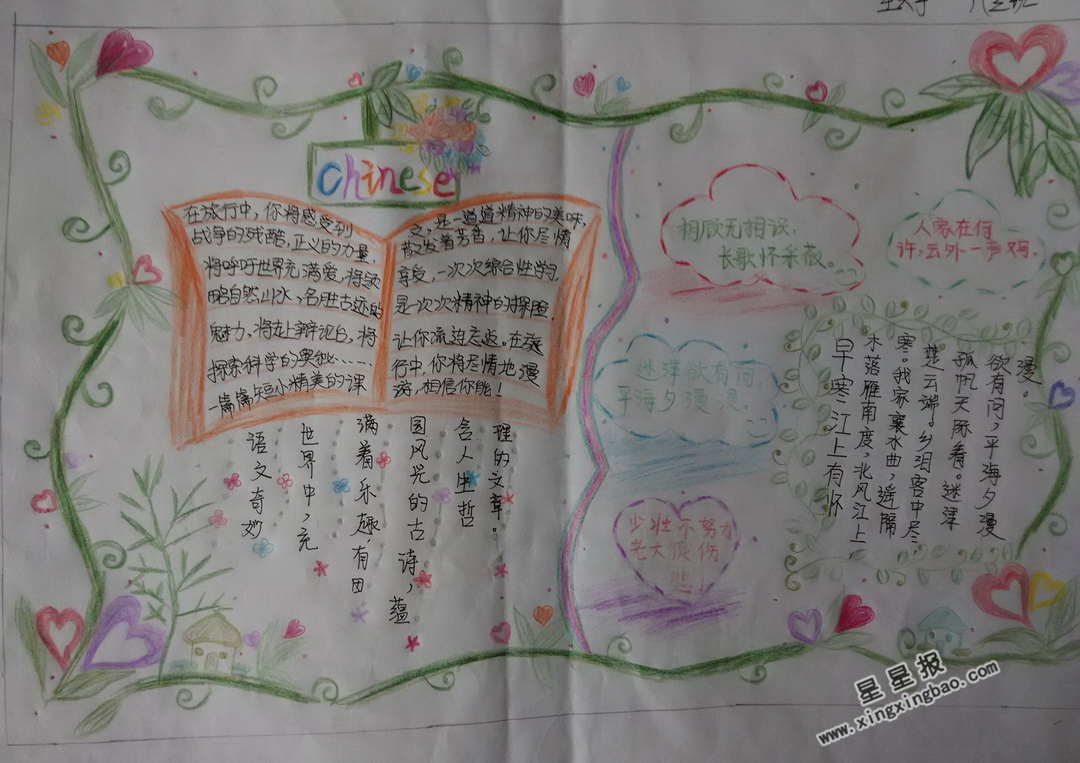 Chinese
在旅行中,你将感受到
战争的残酷,正义的力量,
将呼吁世界充满爱,将领
略自然山水,名胜古迹的
魅力,将走上辩论台,将
探索科学的奥秘……
一篇篇短小精美的课
之,是一道道精神的美味,
散发着芳香,让你尽情
享受,一次次综合性学习,
是一次次精神的探险,
让你流连忘返,在旅
行中,你将尽情地漫
游,相信你能!
语文奇妙
世界中,充
满着乐趣,有田
园风光的古诗,蕴
含人生哲
理的文章。
相顾无相识,
长歌怀采薇。
人家在何
许,云外一声鸡。
迷津欲有问,
平海夕漫漫。
少壮不努力
老大徒伤
悲
早寒江上有怀
木落雁南度,北风江上
寒。我家襄水曲,遥隔
楚云端。乡泪客中尽
孤帆天际看。迷津
欲有问,平海夕漫
漫。
星星报
www.xingxingbao.com